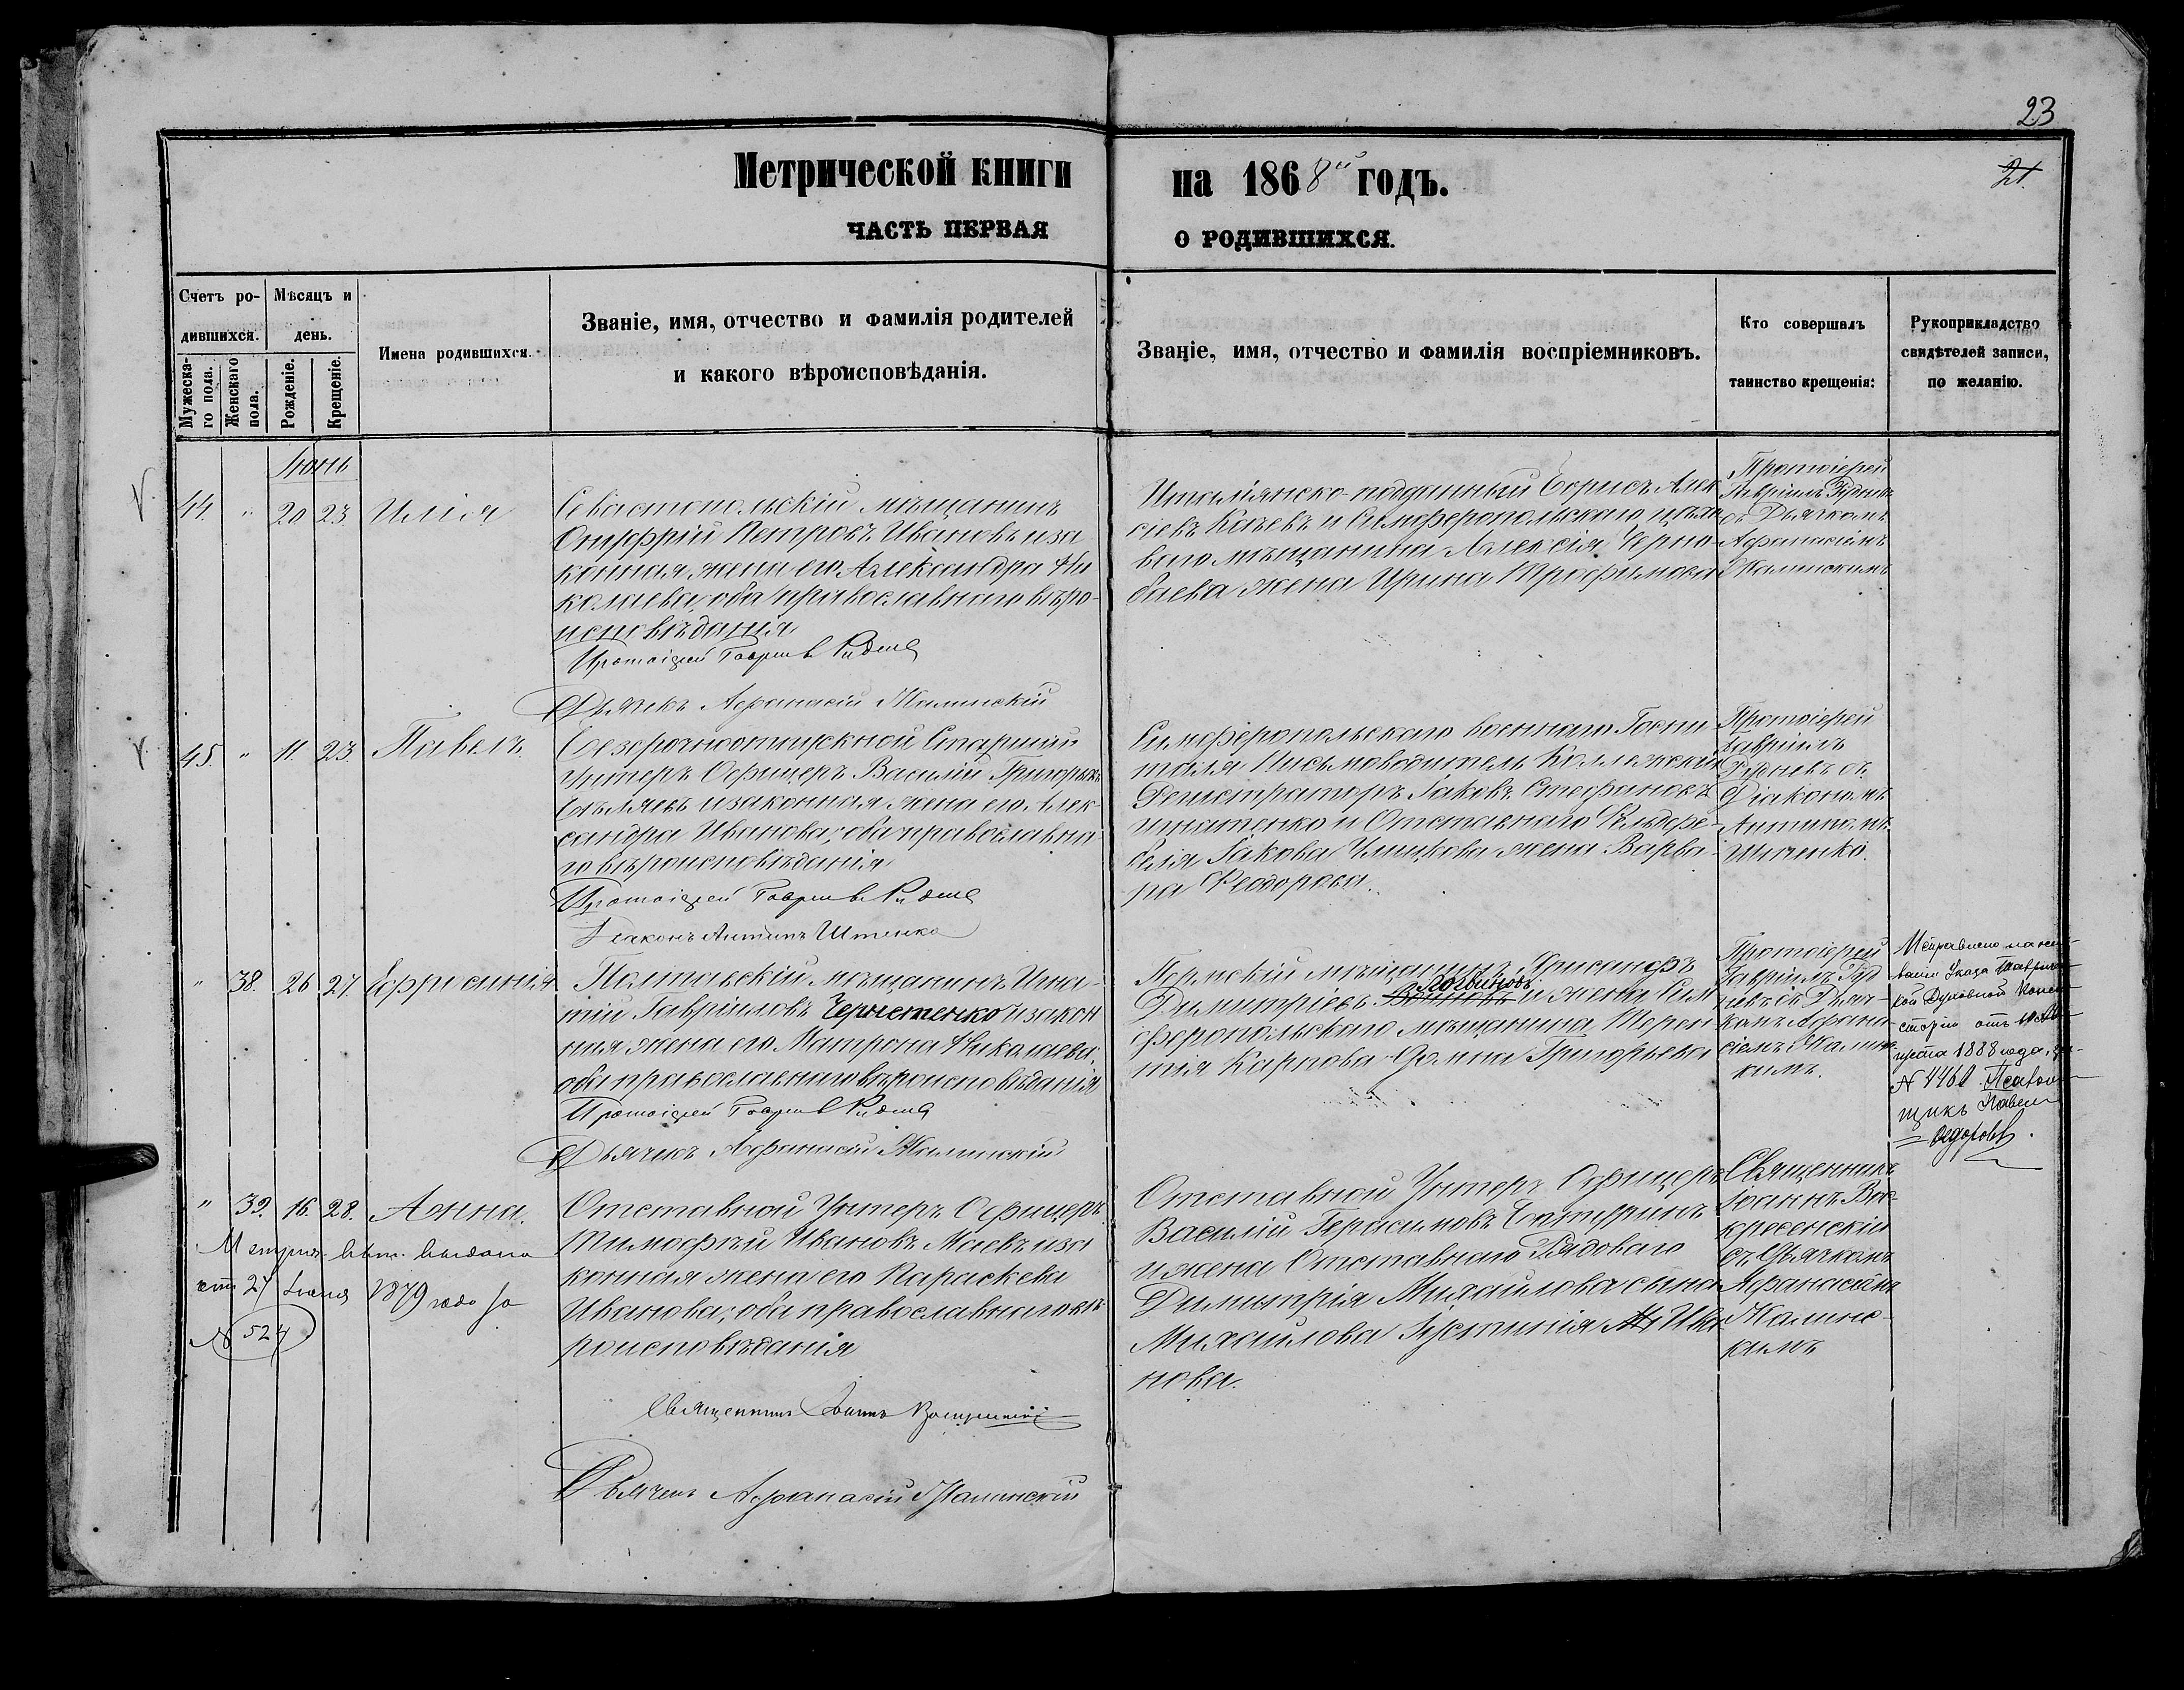 23
21.
Метрической книги на 1868й годъ.
ЧАСТЬ ПЕРВАЯ О РОДИВШИХСЯ.
Счетъ ро-
дившихся.
Мужеска-
го пола.
Женскаго
пола.
Мѣсяцъ и
день.
Рожденіе.
Крещеніе.
Имена родившихся.
Званіе, имя, отчество и фамилія родителей
и какого вѣроисповѣданія.
Званіе, имя, отчество и фамилія воспріемниковъ.
Кто совершалъ
таинство крещенія:
Рукоприкладство
свидѣтелей записи,
по желанію.
Іюнь
44. " 20 23 Илія
Севастопольскій мѣщанинъ
Онуфрій Петровъ Ивановъ и за
конная жена его Александра Ни
колаева, оба православнаго вѣро-
исповѣданія
Протоіерей Гавріилъ Рудневъ
Дьячекъ Афанасій Жалинскій
Итальянско-подданный Борисъ Алек
сіевъ Качевъ и Симферопольскаго цехо
ваго мѣщанина Алексія Черно-
баева жена Ирина Трофимова
Протоіерей
Гавріилъ Рудневъ
съ Дьячкомъ
Афанасіемъ
Жалинскимъ
45. " 11. 23. Павелъ.
Безсрочноотпускной Старшій
Унтеръ Офицеръ Василій Григорьевъ
Бѣляевъ и законная жена его Алек-
сандра Иванова, оба православна-
го вѣроисповѣданія
Протоіерей Гавріилъ Рудневъ
Діаконъ Антипъ Шт
Симферопольскаго Военнаго Госпи
таля Письмоводитель Коллежскій
Регистраторъ Іаковъ Стефановъ
Игнатенко и Отставнаго Фельдфе-
беля Іакова жена Варва-
ра Феодорова.
Протоіерей
Гавріилъ
Рудневъ съ
Діакономъ
Антипомъ
" 38. 26 27. Ефросинія
Полтавскій мѣщанинъ Игна-
тій Гавріиловъ Чернетенко и закон
ная жена его Матрона Николаева,
оба православнаго вѣроисповѣданія
Протоіерей Гавріилъ Рудневъ
Дьячекъ Афанасій Жалинскій
Пермскій мѣщанинъ Хрисанфъ
Логвиновъ
Димитріевъ и жена Сим
феропольскаго мѣщанина Терен
тія Карпова Домна Григорьева
Протоіерей
Гавріилъ Руд
невъ съ Дьяч-
комъ Афана-
сіемъ Жалинс
кимъ.
Исправлено на осно-
ваніи Указа Тавричес-
кой Духовной Конси-
сторіи отъ Ав-
густа 1888 года, за
№ 4461. Псалом-
щикъ Павелъ
Федоровъ.
" 39. 16. 28. Анна.
Метрич. свид. выдано
отъ 27 Іюня 1879 года за
№ 527
Отставной Унтеръ Офицеръ
Тимофѣй Ивановъ Маевъ и за
конная жена его Параскева
Иванова, оба православнаго вѣ
роисповѣданія
Священникъ Іоаннъ Воскресенскій
Дьячекъ Афанасій Жалинскій
Отставной Унтеръ Офицеръ
Василій Герасимовъ Батуринъ
и жена Отставнаго Рядоваго
Димитрія Михаилова сына
Михаилова Іустинія Ива
нова.
Священникъ
Іоаннъ Вос-
кресенскій
съ Дьячкомъ
Афанасіемъ
Жалинс-
кимъ